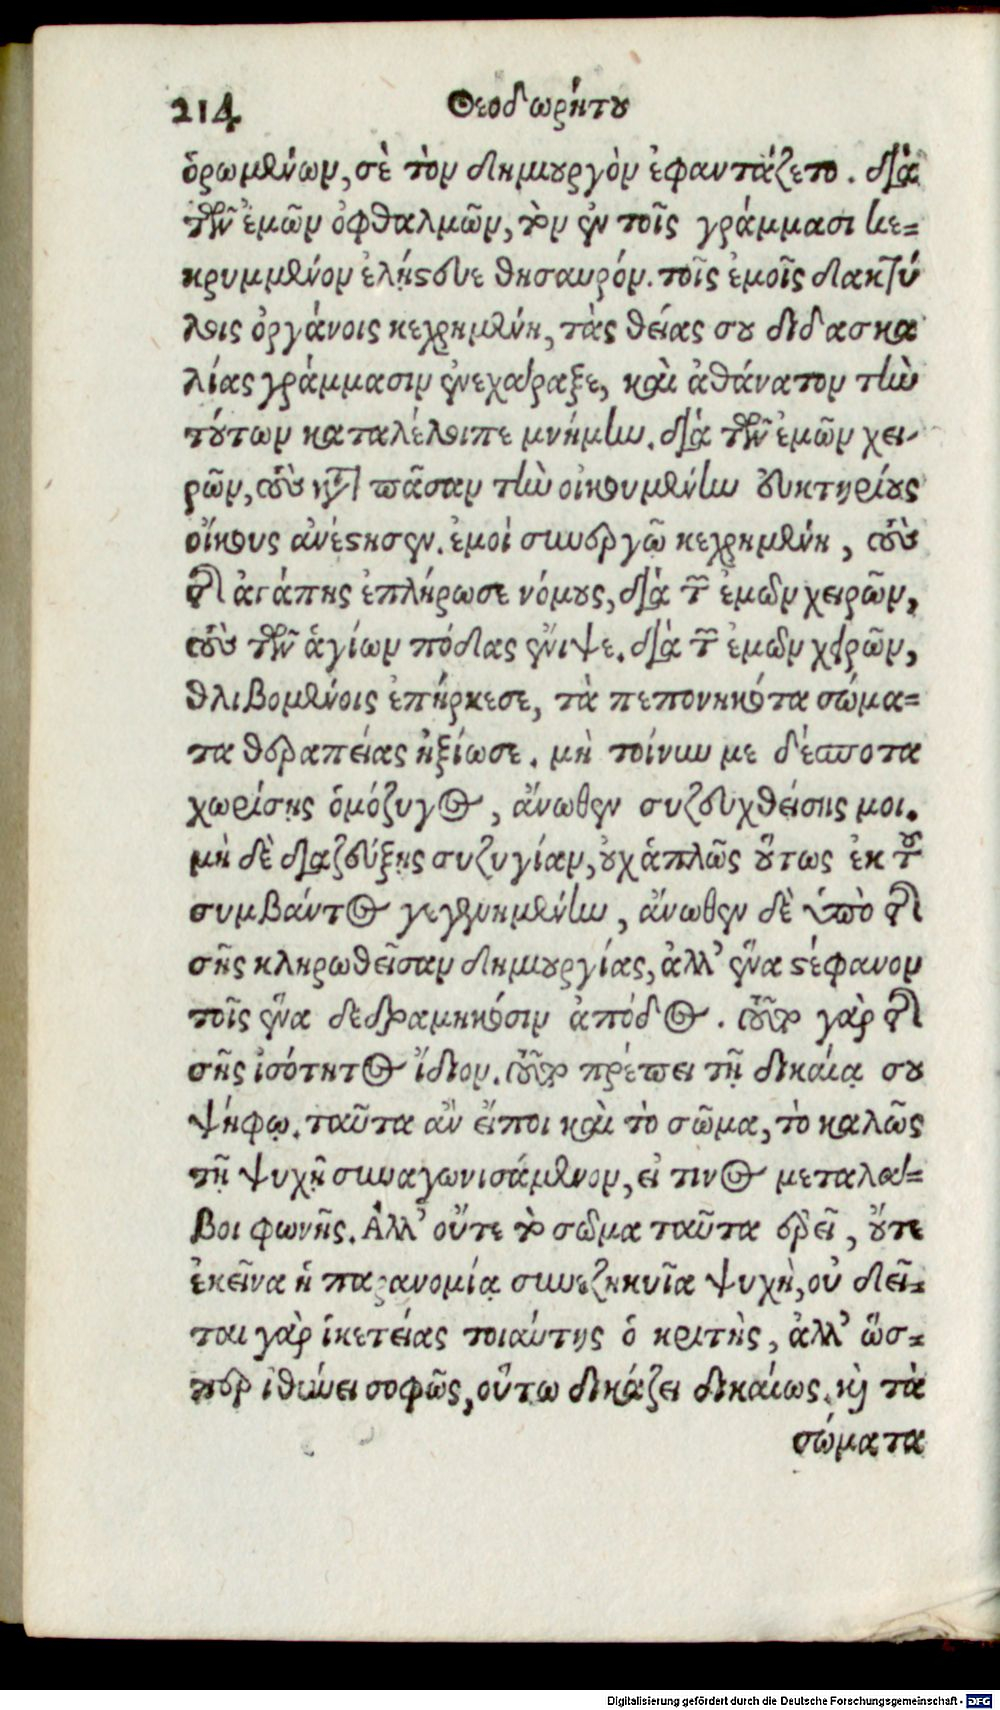 214 Θεοδωρήτου
ὁρωμένων, σὲ τὸν δημιουργὸν ἐφαντάζετο. διὰ
τῶν ἐμῶν ὀφθαλμῶν, τὸν ἐν τοῖς γράμμασι κε-
κρυμμένον ἐλῄστευε θησαυρόν. τοῖς ἐμοῖς δακτύ
λοις ὀργάνοις κεχρημένη, τὰς θείας σου διδασκα
λίας γράμμασιν ἐνεχάραξε, καὶ ἀθάνατον τὴν
τούτων καταλέλοιπε μνήμην. διὰ τῶν ἐμῶν χει-
ρῶν, τοὺς κατὰ πᾶσαν τὴν οἰκουμένην εὐκτηρίους
οἴκους ἀνέστησεν. ἐμοὶ συνεργῷ κεχρημένη, τοὺς
τῆς ἀγάπης ἐπλήρωσε νόμους, διὰ τῶν ἐμῶν χειρῶν,
τοὺς τῶν ἁγίων πόδας ἔνιψε. διὰ τῶν ἐμῶν χειρῶν,
θλιβομένοις ἐπήρκεσε, τὰ πεπονηκότα σώμα-
τα θεραπείας ἠξίωσε. μὴ τοίνυν με δέσποτα
χωρίσῃς ὁμόζυγος, ἄνωθεν συζευχθείσης μοι.
μὴ δὲ διαζεύξῃς συζυγίαν, οὐχ ἁπλῶς οὕτως ἐκ τοῦ
συμβάντος γεγενημένην, ἄνωθεν δὲ ὑπὸ τῆς
σῆς κληρωθεῖσαν δημιουργίας, ἀλλ' ἕνα στέφανον
τοῖς ἕνα δεδραμηκόσιν ἀπόδος. τοῦτο γὰρ τῆς
σῆς ἰσότητος ἴδιον. τοῦτο πρέπει τῇ δικαίᾳ σου
ψήφῳ. ταῦτα ἂν εἴποι καὶ τὸ σῶμα, τὸ καλῶς
τῇ ψυχῇ συναγωνισάμενον, εἴ τινος μεταλά-
βοι φωνῆς. Ἀλλ' οὔτε τὸ σῶμα ταῦτα ἐρεῖ, οὔτε
ἐκεῖνα ἡ παρανομίᾳ συνεζηκυῖα ψυχὴ, οὐ δεῖ-
ται γὰρ ἱκετείας τοιαύτης ὁ κριτὴς, ἀλλ' ὥσ-
περ ἰθύνει σοφῶς, οὕτω δικάζει δικαίως. καὶ τὰ
σώματα
Digitalisierung gefördert durch die Deutsche Forschungsgemeinschaft - DFG